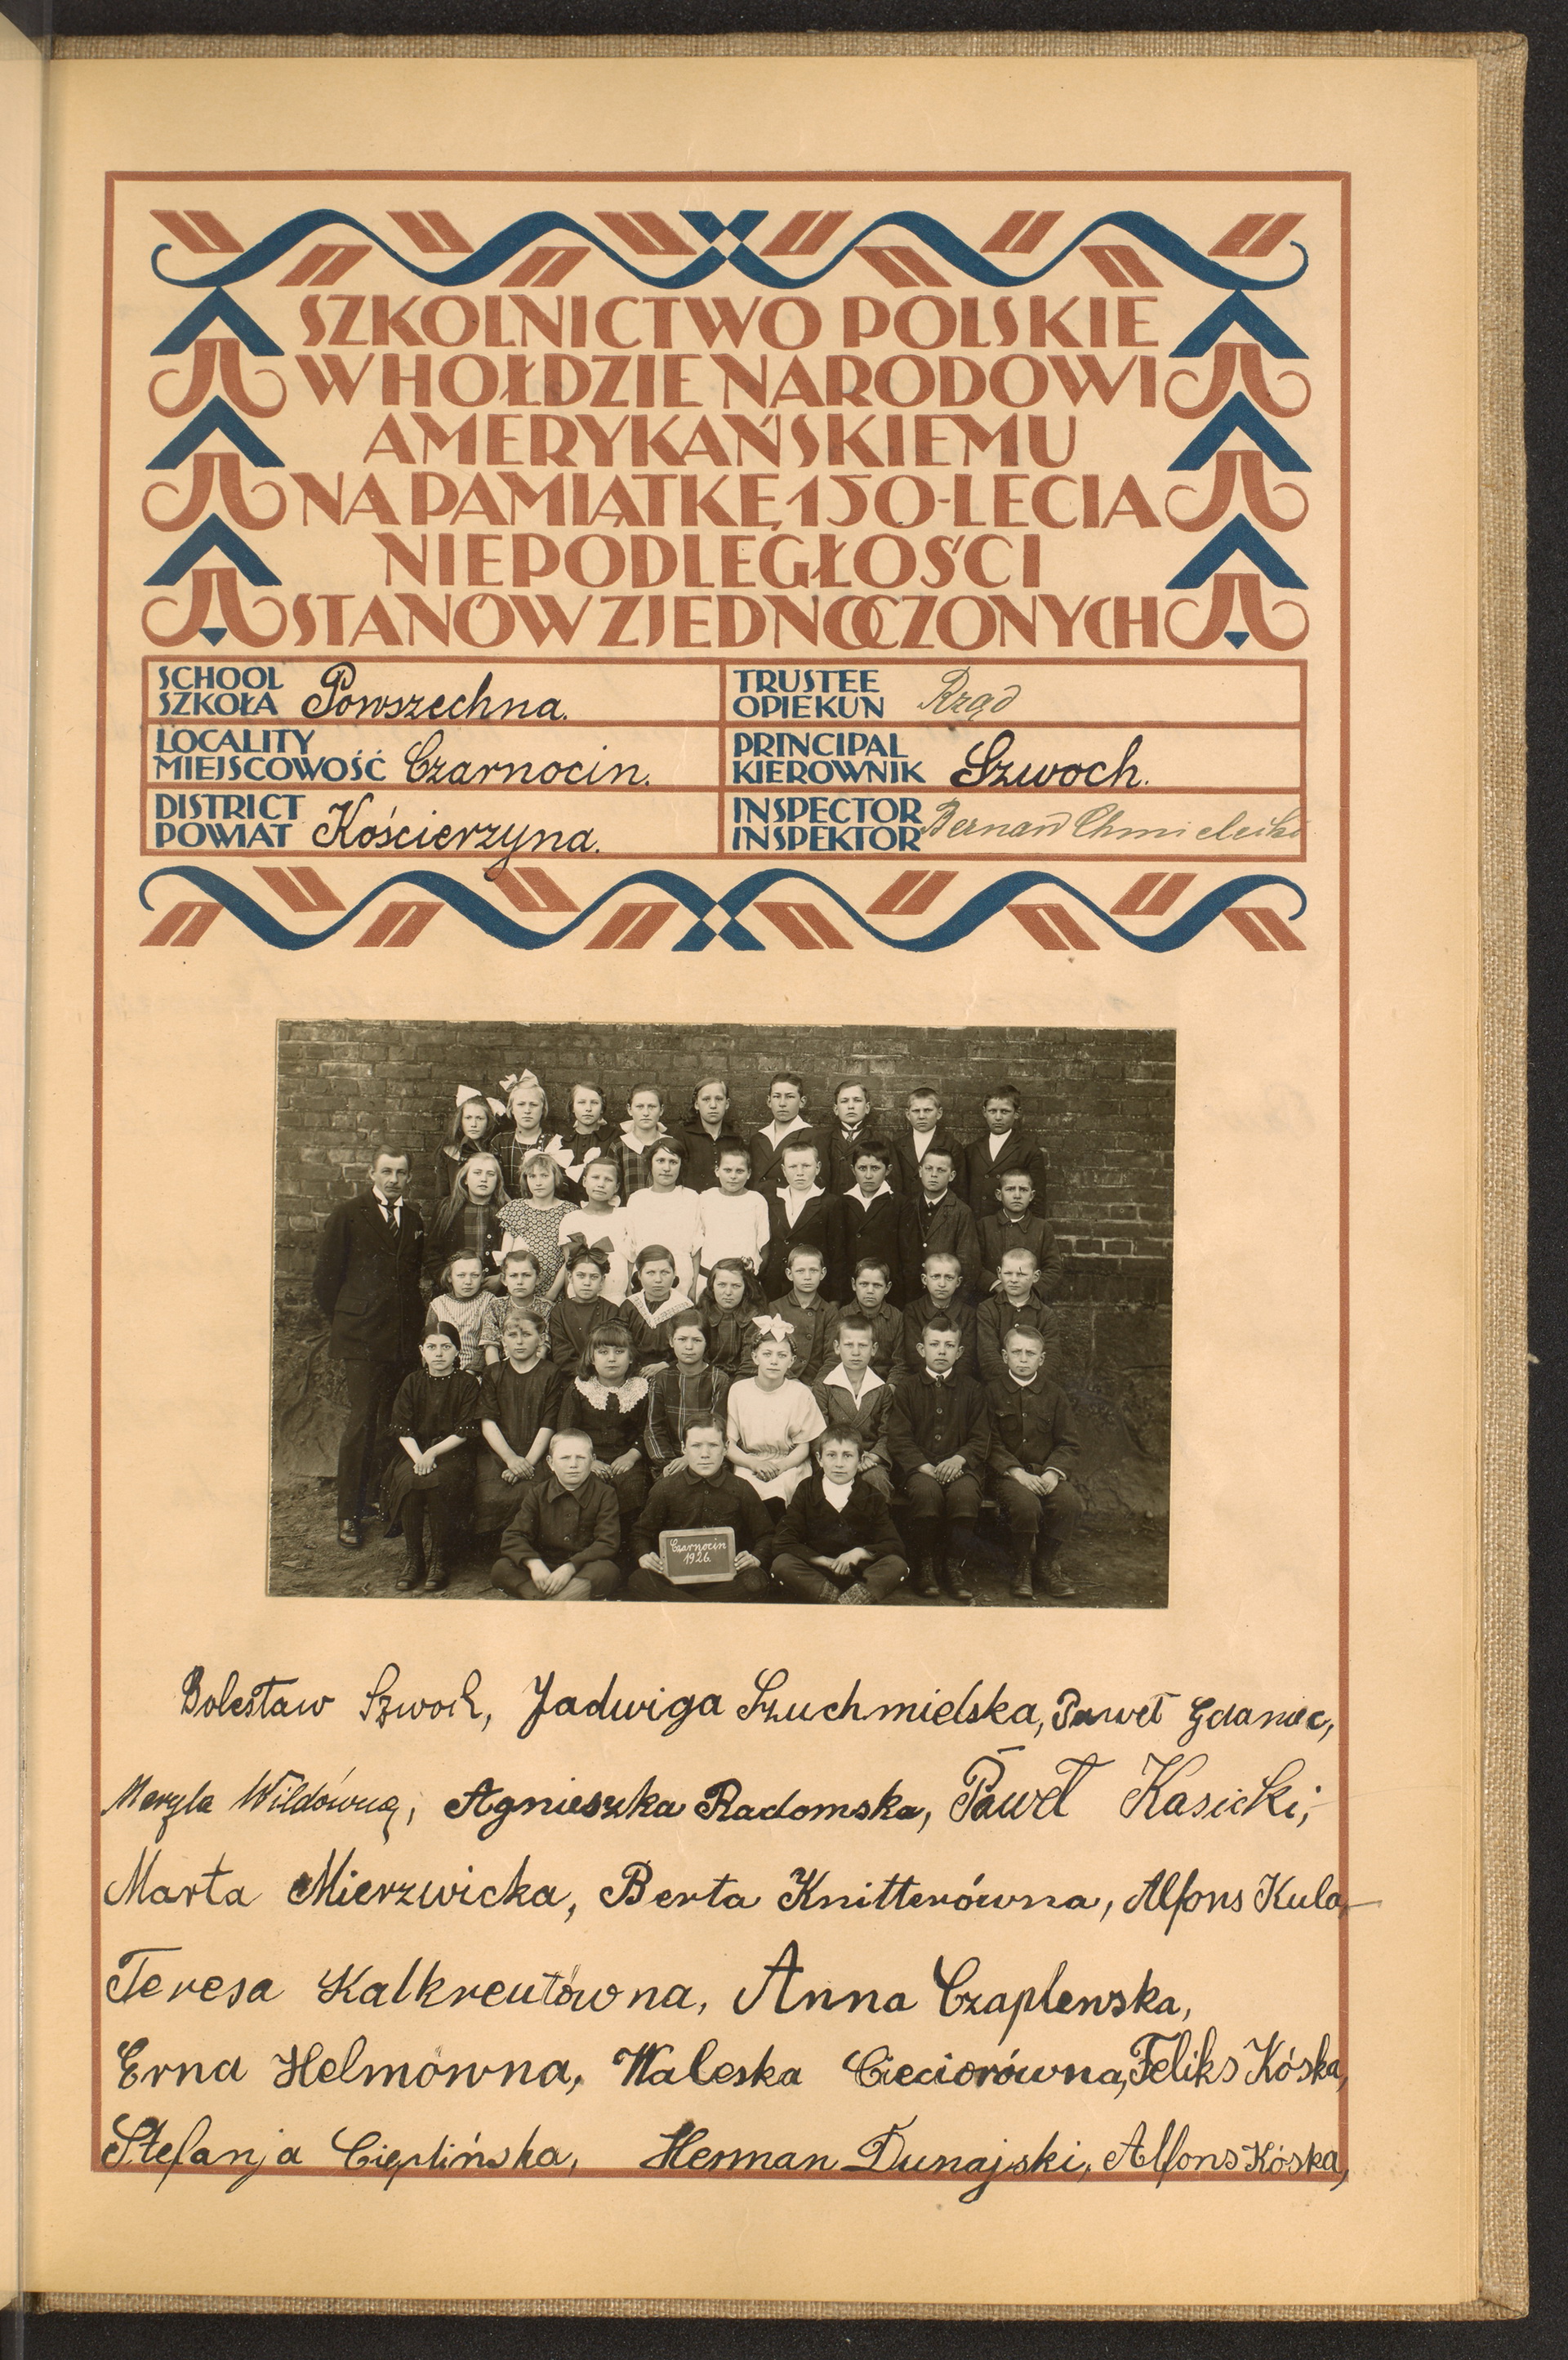 SZKOLNICTWO POLSKIE
W HOŁDZIE NARODOWI
AMERYKAŃSKIEMU
NA PAMIĄTKĘ 150-LECIA
NIEPODLEGŁOŚCI
STANÓW ZJEDNOCZONYCH
SCHOOL
SZKOŁA Powszechna.
TRUSTEE
OPIEKUN Rząd
LOCALITY
MIEJSCOWOŚĆ Czarnocin.
PRINCIPAL
KIEROWNIK Szwoch.
DISTRICT
POWIAT Kościerzyna.
INSPECTOR
INSPEKTOR Bernard Chmielecki
Czarnocin
1926.
Bolesław Szwoch, Jadwiga Szuchmielska, Paweł Gdaniec,
Maryla Wildówną, Agnieszka Radomska, Paweł Kasicki,
Marta Mierzwicka, Berta Knitterówna, Alfons Kula,
Teresa Kalkreutówna, Anna Czaplewska,
Erna Helmówna, Waleska Cieciorówna, Feliks Kóska,
Stefanja Cieplińska, Herman Dunajski, Alfons Kóska,